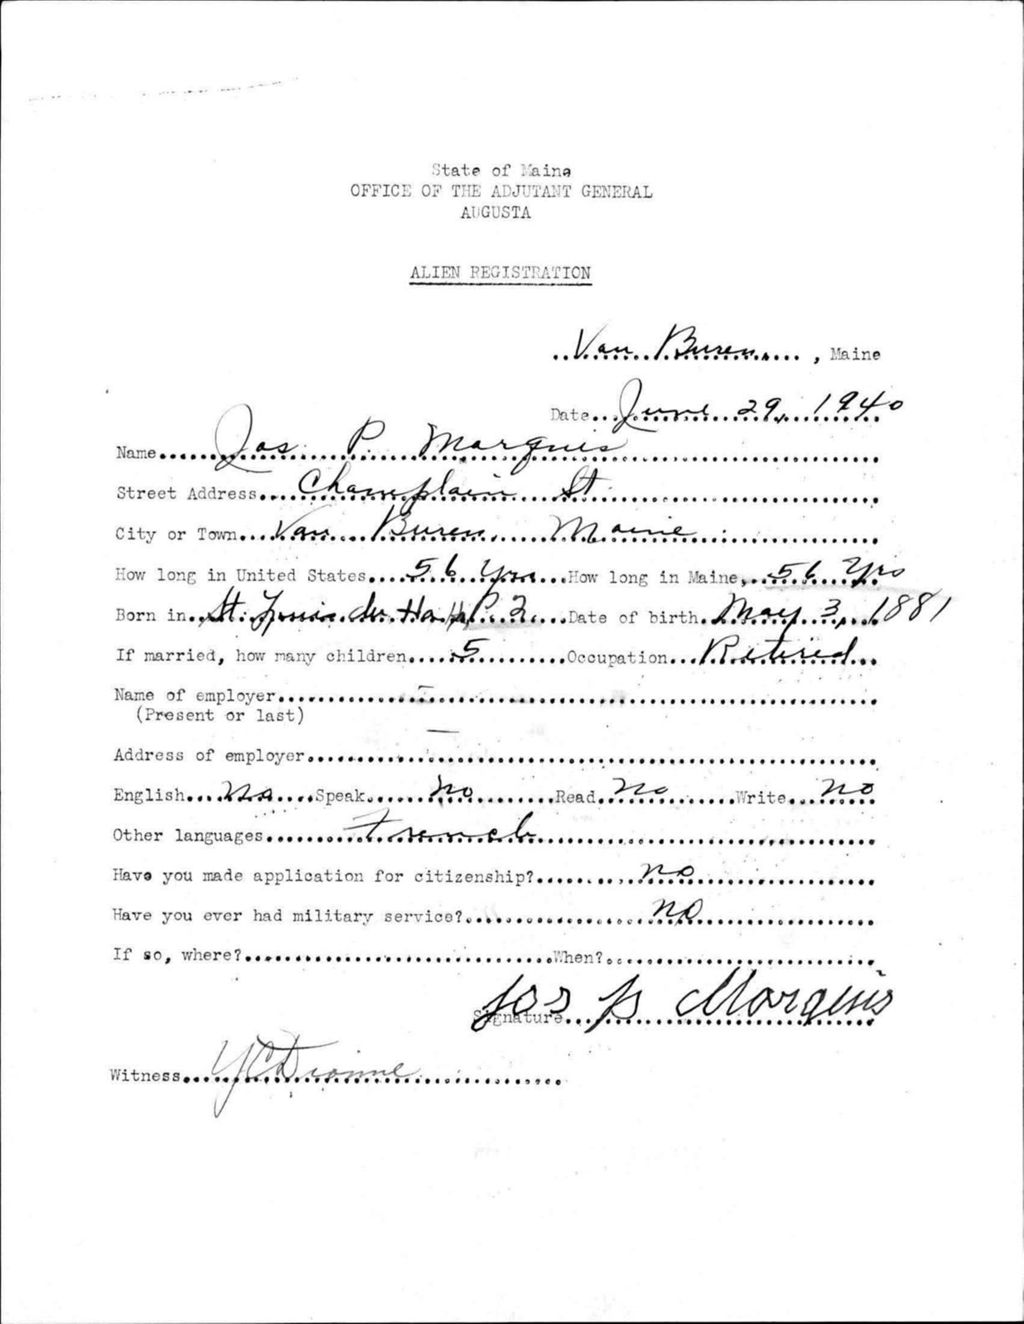 State of Maine
OFFICE OF THE ADJUTANT GENERAL
AUGUSTA
ALIEN REGISTRATION
Van Buren, Maine
Date June 29, 1940
Name Jos P. Marquis
Street Address Champlain St
City or Town Van Buren, Maine
How long in United States 56 Yrs How long in Maine, 56 Yrs
Born in St. Louis du Ha Ha P.Q. Date of birth May 3, 1881
If married, how many children 5 Occupation Retired
Name of employer —
(Present or last)
Address of employer —
English No Speak No Read No Write No
Other languages French
Have you made application for citizenship? no
Have you ever had military service? no
If so, where? When?
Signature Jos P Marquis
Witness Y C Dionne